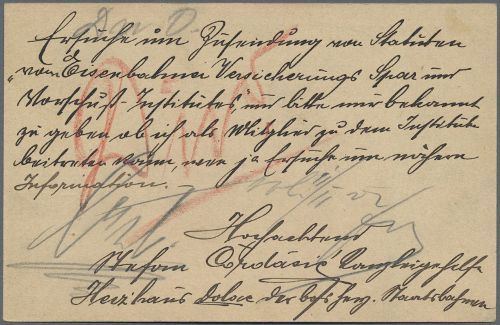 Ersuche um Zusendung von Statuten
„vom Eisenbahner Versicherungs Spar und
Vorschuß-Institutes" nur bitte mir bekannt
zu geben ob ich als Mitglied zu dem Institute
beitreten kann, wenn ja Ersuche um nähere
Information.
Hochachtend
Stefan Kanzleigehilfe
Heizhaus Doloc der bos. herz. Staatsbahnen